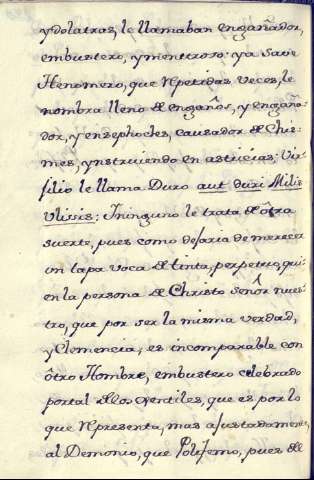 ydolatras, le llamaban engañador,
embustero, y mentiroso: ya save
Henomero, que repetidas veces, le
nombra lleno de engaños, y engaña-
dor, y ensephocles, causador de Chis-
mes, ynstruiendo en astucias: Vir-
jilio le llama Duro aut duri Milis
Ulissis: Ininguno le trata de ôtra
suerte, pues como dejaria de merecer
un tapa voca de tinta, perpetuo, qui-
en la persona de Christo señôr nues-
tro, que por ser la misma verdad,
y Clemencia, es incomparable con
ôtro Hombre, embustero celebrado
portal de los gentiles, que es por lo
que representa, mas ajustadamente,
al Demonio, que Polifemo, pues de el